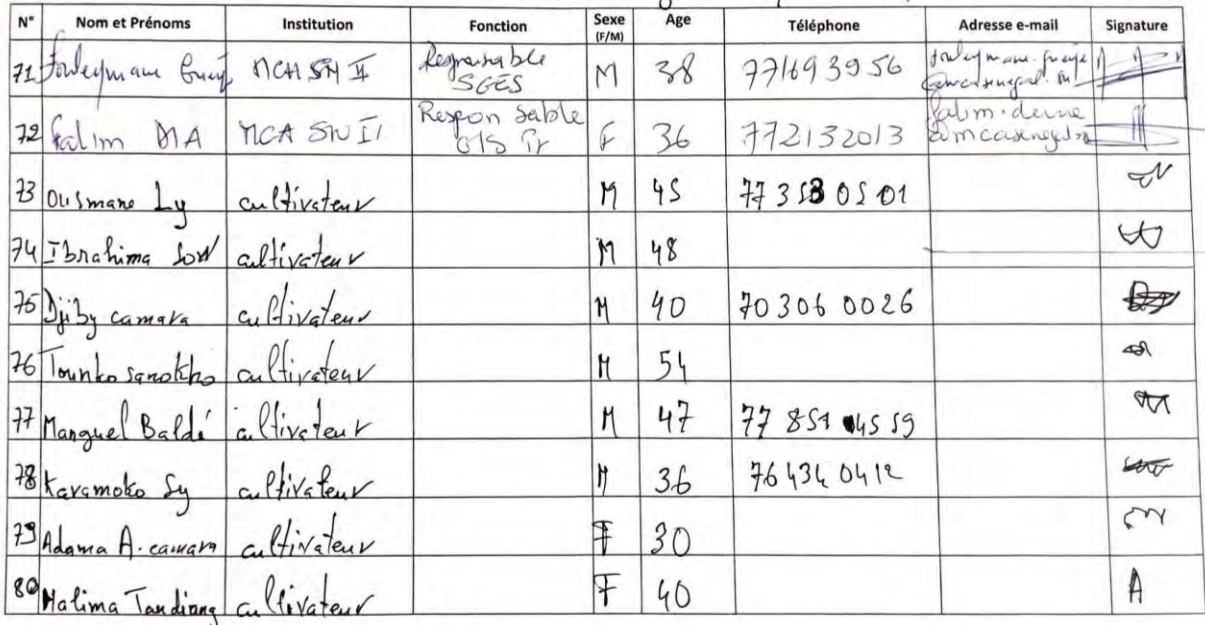 N° Nom et Prénoms Institution Fonction Sexe (F/M) Age Téléphone Adresse e-mail Signature
71 Souleymane MCA SN II Responsable SGES M 38 771693956
72 Fatim MCA SN II Responsable F 36 772132013
73 Ousmane Ly cultivateur M 45 77 353 05 01
74 Ibrahima Sow cultivateur M 48
75 Djiby camara cultivateur M 40 70 306 0026
76 Tounko sanokho cultivateur M 54
77 Manguel Baldé cultivateur M 47 77 851 45 59
78 Karamoko Sy cultivateur M 36 76 434 0412
79 Adama A. camara cultivateur F 30
80 Halima Tandiang cultivateur F 40 A